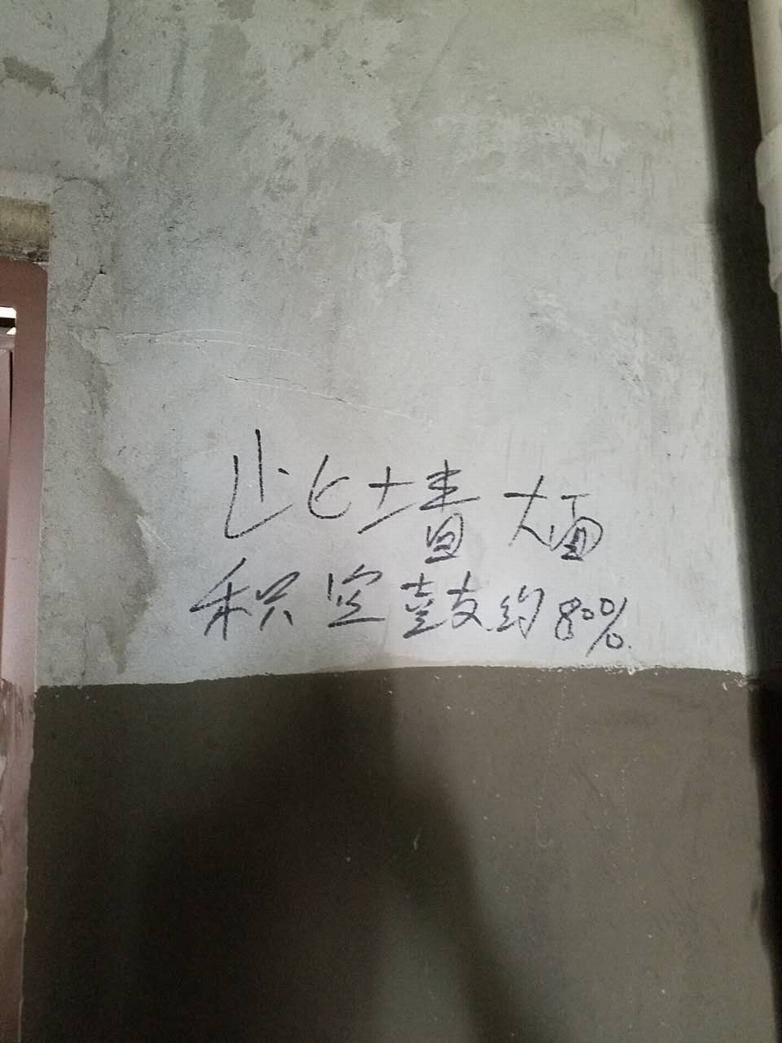 此墙大面
积空鼓约80%